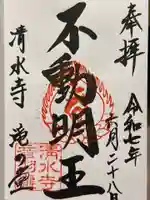 奉拝
令和七年
六月二十八日
不動明王
清水寺
滝の堂
清水寺